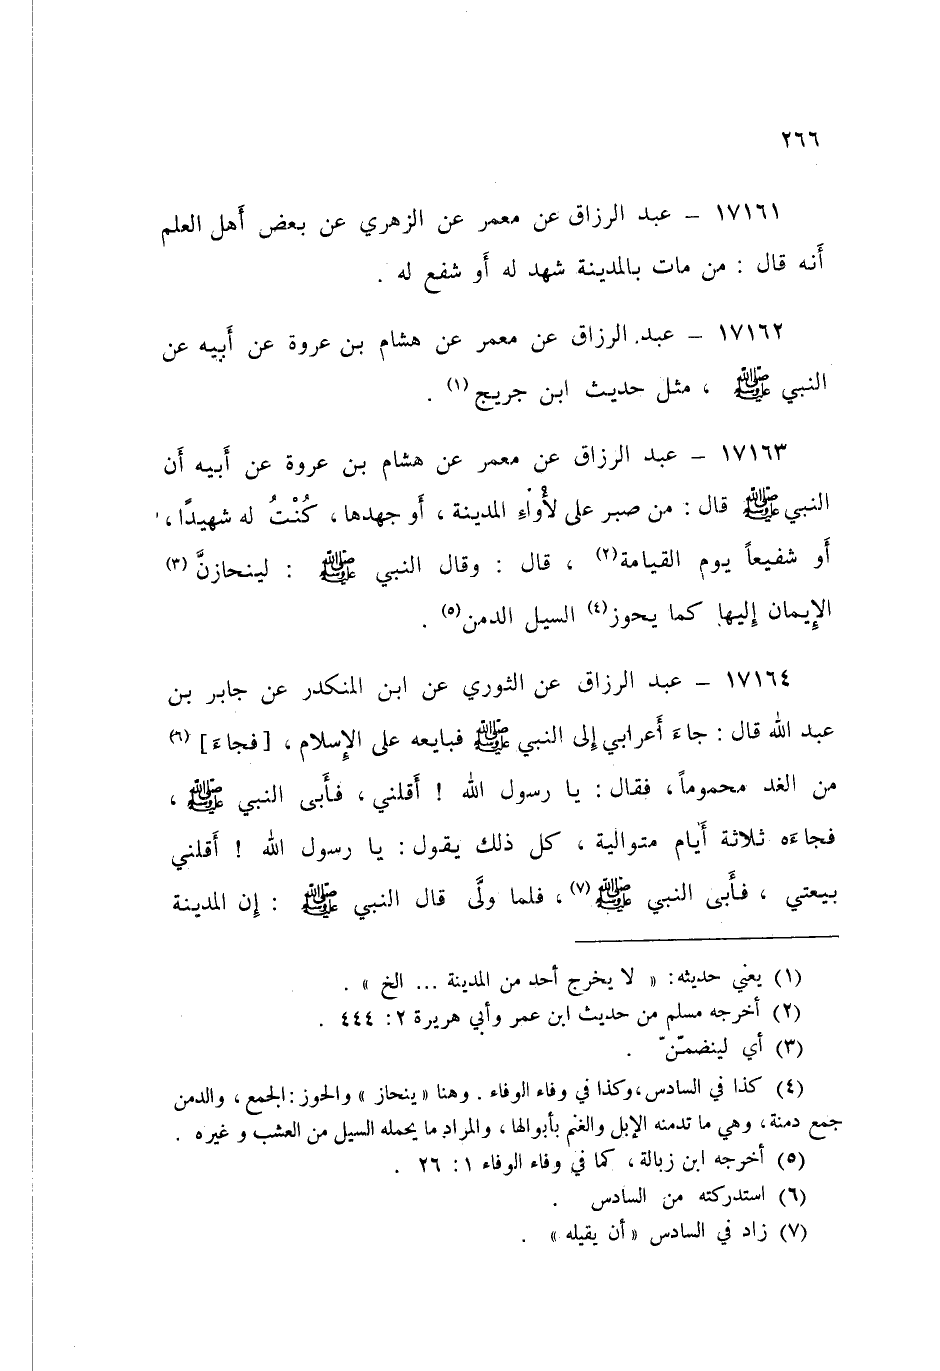 ٢٦٦
١٧١٦١ – عبد الرزاق عن معمر عن الزهري عن بعض أهل العلم
أَنه قال : من مات بالمدينة شهد له أَو شفع له .
١٧١٦٢ – عبد الرزاق عن معمر عن هشام بن عروة عن أَبيه عن
النبي ﷺ ، مثل حديث ابن جريج(١) .
١٧١٦٣ – عبد الرزاق عن معمر عن هشام بن عروة عن أَبيه أَن
النبي ﷺ قال : من صبر على لأْوَاءِ المدينة ، أَو جهدها ، كُنْتُ له شهيدًا ،
أَو شفيعاً يوم القيامة(٢) ، قال : وقال النبي ﷺ : لينحازنَّ(٣)
الإِيمان إِليها كما يحوز(٤) السيل الدمن(٥) .
١٧١٦٤ – عبد الرزاق عن الثوري عن ابن المنكدر عن جابر بن
عبد الله قال : جاءَ أَعرابي إِلى النبي ﷺ فبايعه على الإِسلام ، [فجاءَ](٦)
من الغد محموماً ، فقال : يا رسول الله ! أَقلني ، فأَبى النبي ﷺ ،
فجاءَه ثلاثة أَيام متوالية ، كل ذلك يقول : يا رسول الله ! أَقلني
بيعتي ، فأَبى النبي ﷺ(٧) ، فلما ولَّى قال النبي ﷺ : إِن المدينة
(١) يعني حديثه: « لا يخرج أحد من المدينة ... الخ » .
(٢) أخرجه مسلم من حديث ابن عمر وأبي هريرة ٢: ٤٤٤ .
(٣) أي لينضمّنّ .
(٤) كذا في السادس،وكذا في وفاء الوفاء . وهنا « ينحاز » والحوز :الجمع ، والدمن
جمع دمنة ، وهي ما تدمنه الإبل والغنم بأبوالها ، والمراد ما يحمله السيل من العشب و غيره .
(٥) أخرجه ابن زبالة ، كما في وفاء الوفاء ١: ٢٦ .
(٦) استدركته من السادس .
(٧) زاد في السادس « أن يقيله » .